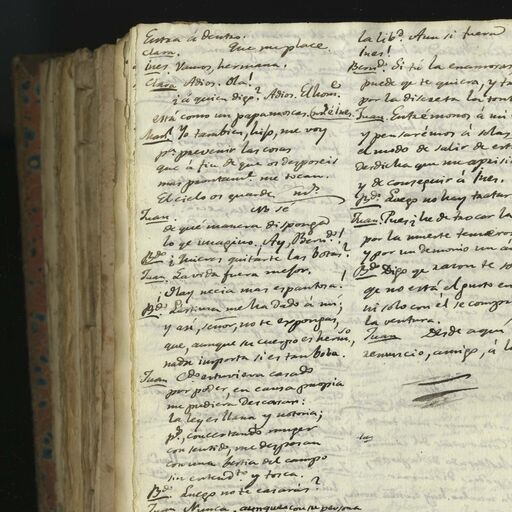 Entra á dentro.
Clara. Que me place.
Ines. Vamos, hermana.
Clara Adios. Olá!
¿á quien digo? Adios. El hom.e
está como un papamoscas. (vase é Ines.
Yo tambien, hijo, me voy
p.a prevenir las cosas
que á fin de que os desposeis
mas prontam.te me tocan.
El cielo os guarde
Juan. No sé
de qué manera disponga
lo q.e imagino. Ay, Bern.do!
B.do ¿Quieres quitarte las botas?
Juan. La vida fuera mejor.
¡Hay necia mas espantosa!
B.do Lastima me ha dado á mí;
y así, señor, no te expongas,
que, aunque su cuerpo es herm.so,
nada importa si es tan boba.
Juan C.do estuviera casado
por poder, en causa propia
me pudiera descasar:
la ley es llana y notoria;
p.s, concertando muger
con sentido, me desposan
con una bestia del campo
sin entend.to y tosca.
B.do Luego no te casarás?
Juan Nunca. aunque con su persona
la lib.d. Aun si fuera
Ines!
Bern.do Si tá la enamoras
puede q.e te quiera, y
por la discreta la
Juan. Entrémonos á mi
y pensarémos á solas
el modo de salir de
desdicha que me
y de conseguir á Ines.
B.do Luego no hay tratar
Juan. Pues; he de trocar la
por la muerte
y por un demonio un
B.do Digo q.e razon te
que no está el gusto en
ni solo con él se
la ventura.
Juan Desde aquí
renuncio, amigo, á l